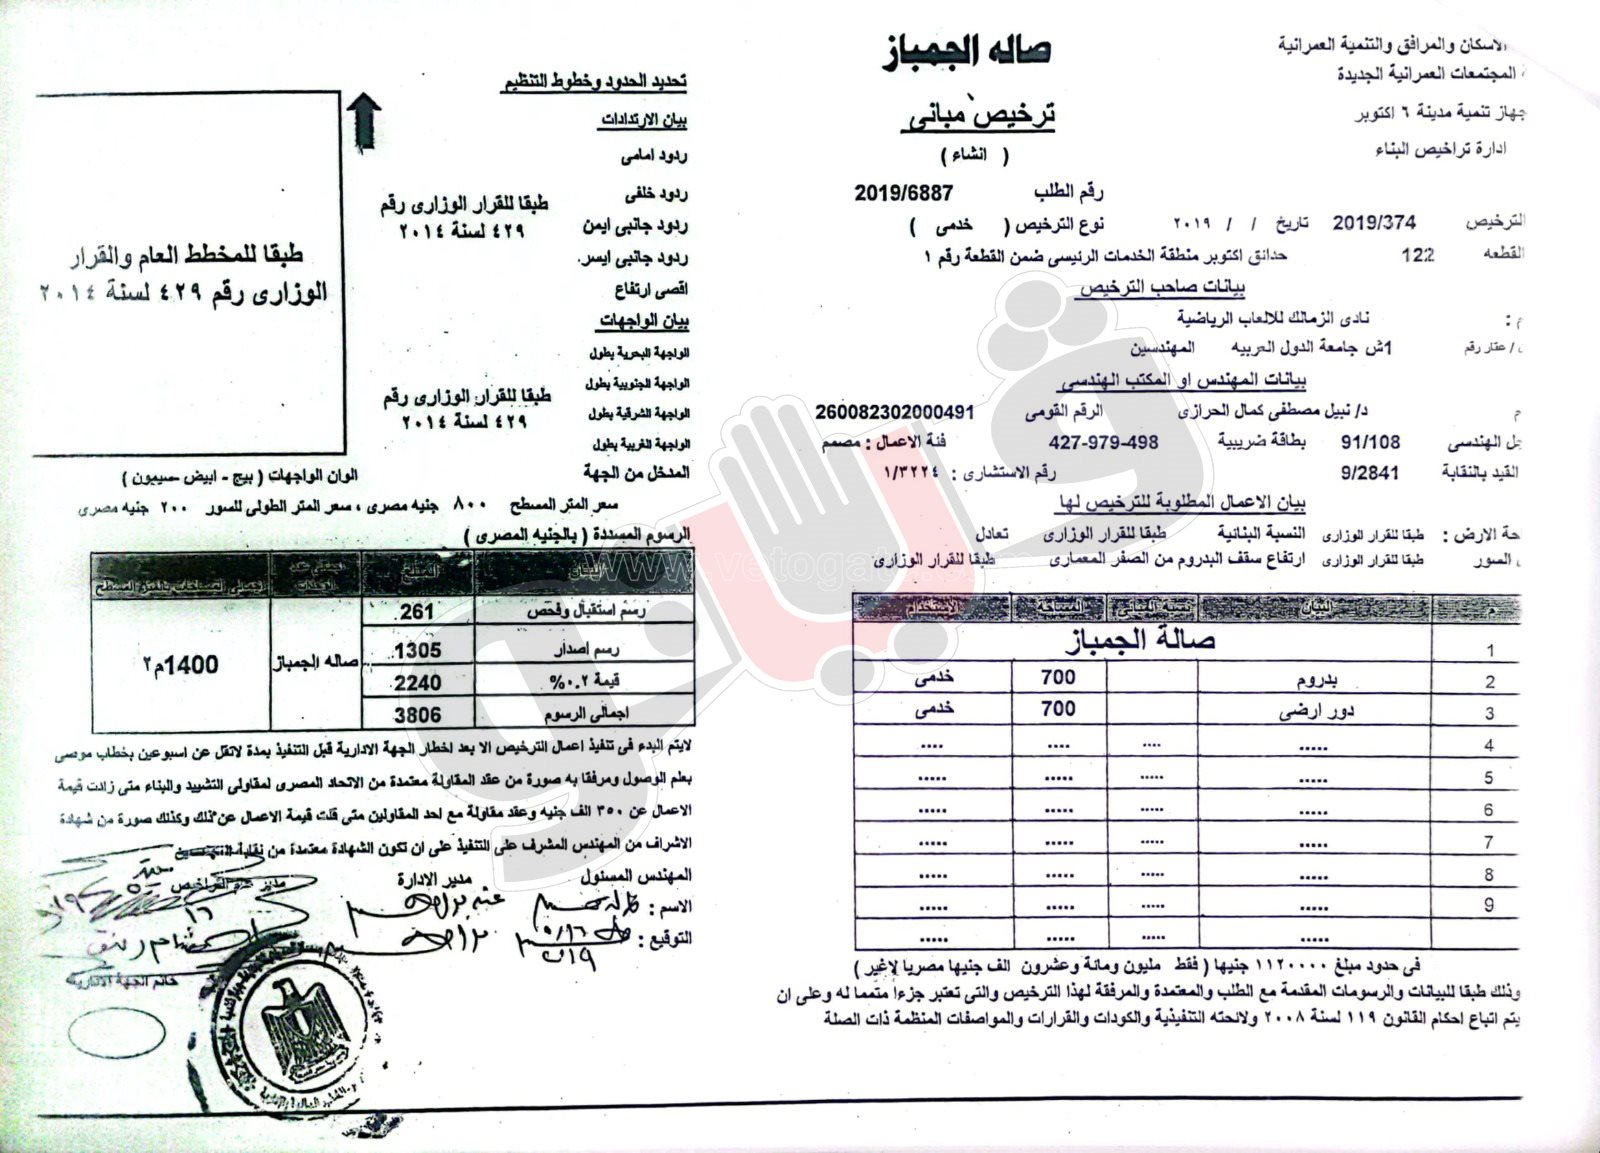 صاله الجمباز
الاسكان والمرافق والتنمية العمرانية
المجتمعات العمرانية الجديدة
جهاز تنمية مدينة ٦ اكتوبر
ادارة تراخيص البناء
ترخيص مبانى
( انشاء )
رقم الطلب 2019/6887
الترخيص 2019/374 تاريخ / / ٢٠١٩ نوع الترخيص ( خدمى )
القطعه 122 حدائق اكتوبر منطقة الخدمات الرئيسى ضمن القطعة رقم ١
بيانات صاحب الترخيص
م : نادى الزمالك للالعاب الرياضية
/ عقار رقم 1ش جامعة الدول العربيه المهندسين
بيانات المهندس او المكتب الهندسى
م د/ نبيل مصطفى كمال الحرازى الرقم القومى 260082302000491
جل الهندسى 91/108 بطاقة ضريبية 427-979-498 فئة الاعمال : مصمم
القيد بالنقابة 9/2841 رقم الاستشارى : ١/٣٢٢٤
بيان الاعمال المطلوبة للترخيص لها
حة الارض : طبقا للقرار الوزارى النسبة البنائية طبقا للقرار الوزارى تعادل
السور طبقا للقرار الوزارى ارتفاع سقف البدروم من الصفر المعمارى طبقا للقرار الوزارى
م البيان نسبة المبانى المساحة الاستخدام
1 صالة الجمباز
2 بدروم 700 خدمى
3 دور ارضى 700 خدمى
4 ..... .... .... ....
5 ..... ..... ..... .....
6 ..... ..... ..... .....
7 ..... ..... ..... .....
8 ..... ..... ..... .....
9 ..... ..... ..... .....
..... ..... ..... .....
فى حدود مبلغ ١١٢٠٠٠٠ جنيها ( فقط مليون ومائة وعشرون الف جنيها مصريا لاغير )
وذلك طبقا للبيانات والرسومات المقدمة مع الطلب والمعتمدة والمرفقة لهذا الترخيص والتى تعتبر جزءا متمما له وعلى ان
يتم اتباع احكام القانون ١١٩ لسنة ٢٠٠٨ ولائحته التنفيذية والكودات والقرارات والمواصفات المنظمة ذات الصلة
تحديد الحدود وخطوط التنظيم
بيان الارتدادات
ردود امامى
ردود خلفى
ردود جانبى ايمن
ردود جانبى ايسر.
اقصى ارتفاع
طبقا للقرار الوزارى رقم
٤٢٩ لسنة ٢٠١٤
طبقا للمخطط العام والقرار
الوزارى رقم ٤٢٩ لسنة ٢٠١٤
بيان الواجهات
الواجهة البحرية بطول
الواجهة الجنوبية بطول
الواجهة الشرقية بطول
الواجهة الغربية بطول
طبقا للقرار الوزارى رقم
٤٢٩ لسنة ٢٠١٤
المدخل من الجهة الوان الواجهات ( بيج - ابيض -سيمون )
سعر المتر المسطح ٨٠٠ جنيه مصرى ، سعر المتر الطولى للسور ٢٠٠ جنيه مصرى
الرسوم المسددة ( بالجنيه المصرى )
البيان المبلغ اجمالى عدد الوحدات اجمالى المسطحات بالمتر المسطح
رسم استقبال وفحص 261
رسم اصدار 1305
صاله الجمباز 1400م٢
قيمة ٠.٢% 2240
اجمالى الرسوم 3806
لايتم البدء فى تنفيذ اعمال الترخيص الا بعد اخطار الجهة الادارية قبل التنفيذ بمدة لاتقل عن اسبوعين بخطاب موصى
بعلم الوصول ومرفقا به صورة من عقد المقاولة معتمدة من الاتحاد المصرى لمقاولى التشييد والبناء متى زادت قيمة
الاعمال عن ٣٥٠ الف جنيه وعقد مقاولة مع احد المقاولين متى قلت قيمة الاعمال عن ذلك وكذلك صورة من شهادة
الاشراف من المهندس المشرف على التنفيذ على ان تكون الشهادة معتمدة من نقابة المهندسين
المهندس المسئول مدير الادارة مدير عام التراخيص
الاسم :
التوقيع :
خاتم الجهة الادارية
فيتو
www.vetogate.com